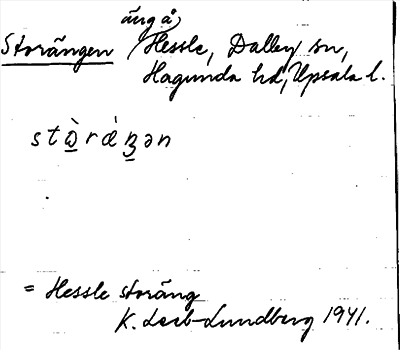 äng å,
Storängen Hessle, Dalby sn,
Hagunda hd, Upsala l.
stɷ̀ráŋən
= Hessle storäng
K. Leeb-Lundberg 1941.